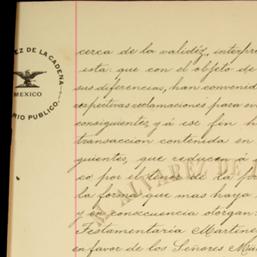 EZ DE LA CADENA
MEXICO
RIO PUBLICO.
cerca de la validéz, interpre
esta que con el objeto de
sus diferencias, han convenid
respectivas reclamaciones para ev
consiguientes, y á ese fin h
transaccion contenida en
guientes, que reducen á
co por el tenor de la
la forma que mas haya
y en consecuencia otorgan:
Testamentaria Martine
en favor de los Señores Mu
ALVAREZ DE